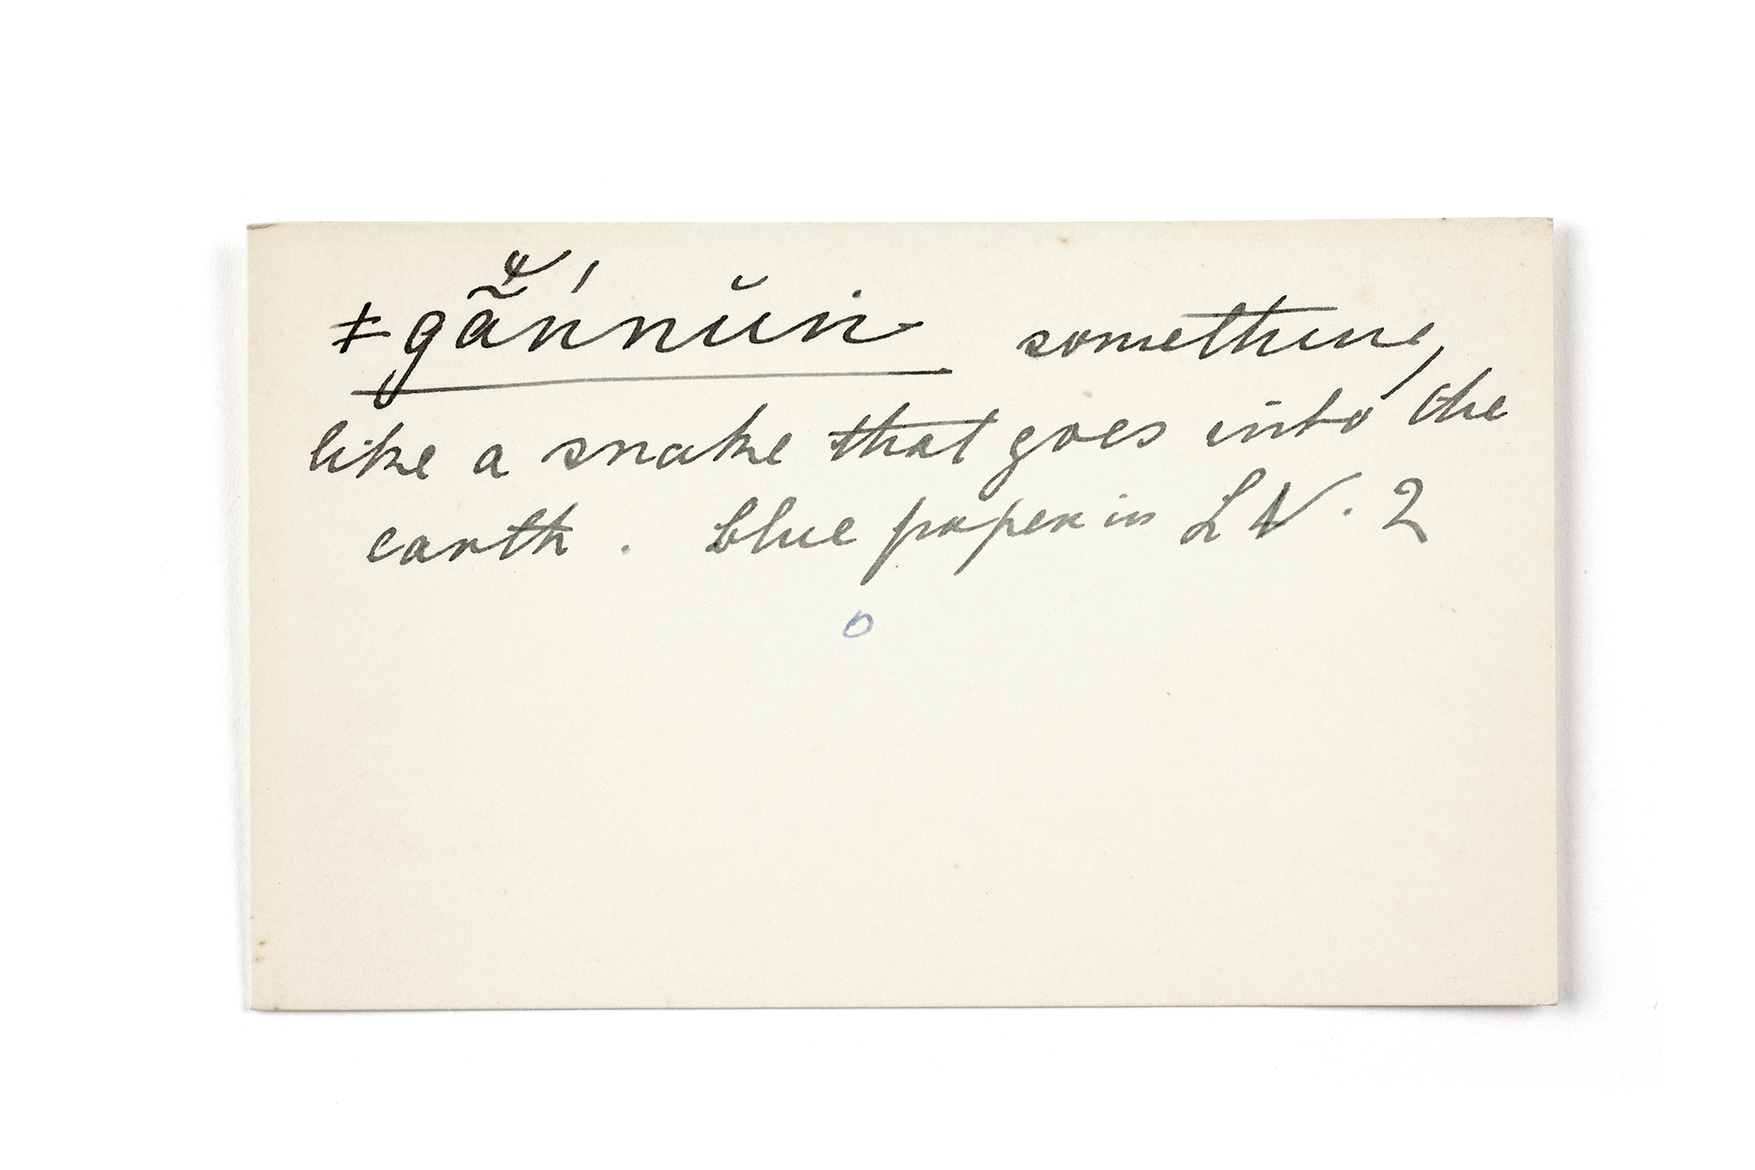 ǂgā̃́nnŭin something
like a snake that goes into the
earth. blue paper in L V. 2
o